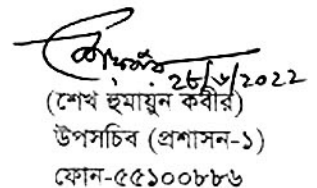 ২৮/৬/2022
(শেখ হুমায়ুন কবীর)
উপসচিব (প্রশাসন-১)
ফোন-৫৫১০০৮৮৬